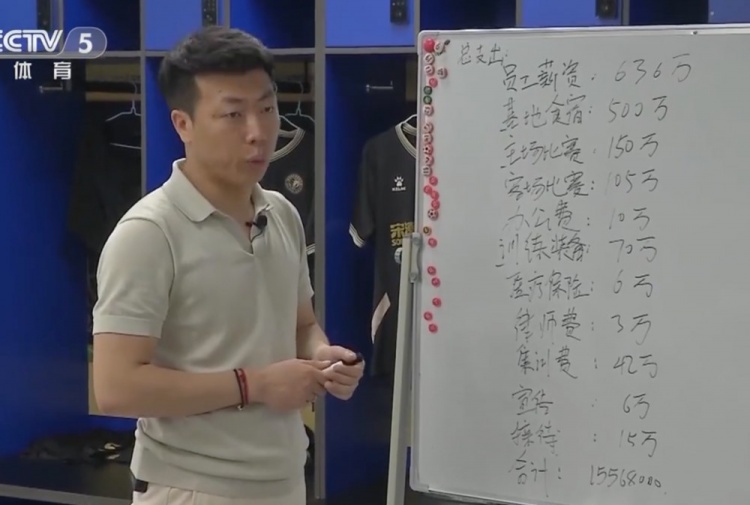 CCTV 5
体育
总支出:
员工薪资: 636万
基地食宿: 500万
主场比赛: 150万
客场比赛: 105万
办公费: 10万
训练装备: 70万
医疗保险: 6万
律师费: 3万
集训费: 42万
宣传: 6万
接待: 15万
合计: 15568000.
KELME